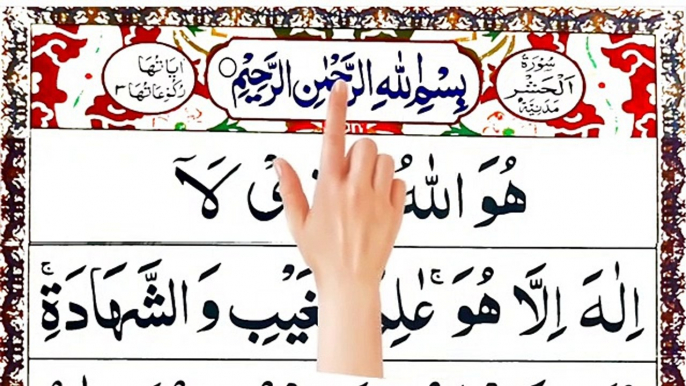 سُوْرَةُ
الْحَشْرِ
مَدَنِيَّةٌ
بِسْمِ اللهِ الرَّحْمٰنِ الرَّحِيْمِ
اٰيَاتُهَا
رُكُوْعَاتُهَا ٣
هُوَ اللّٰهُ لَاۤ
اِلٰهَ اِلَّا هُوَ ۚ عٰلِمُ غَيْبِ وَ الشَّهَادَةِ ۚ